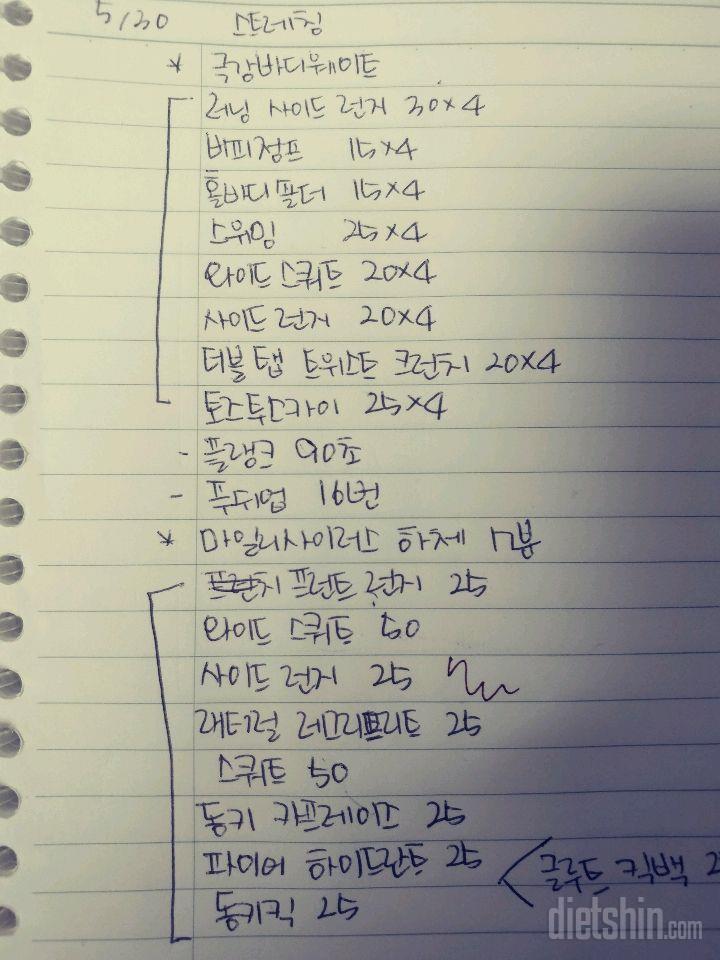 5/30 스트레칭
* 극강바디웨이트
러닝 사이드 런지 30×4
버피점프 15×4
홀바디 폴더 15×4
스위밍 25×4
와이드 스쿼트 20×4
사이드 런지 20×4
더블 탭 트위스트 크런치 20×4
토스투스카이 25×4
- 플랭크 90초
- 푸쉬업 16번
* 마일리사이러스 하체 17분
프런트 런지 25
와이드 스쿼트 50
사이드 런지 25
래터럴 레그리프트 25
스쿼트 50
동키 카프레이즈 25
파이어 하이드란트 25 < 글루트 킥백 2
동키킥 25
dietshin.com